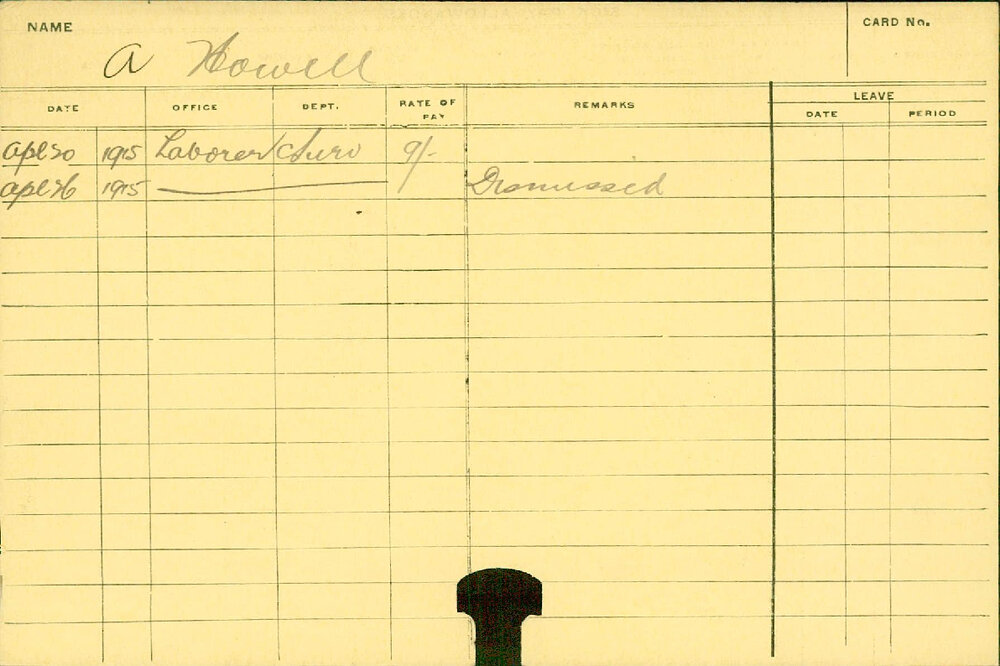 NAME
CARD No.
A Howell
DATE OFFICE DEPT. RATE OF PAY REMARKS LEAVE
DATE PERIOD
Apl 20 1915 Laborer 9/-
Apl 26 1915 Dismissed